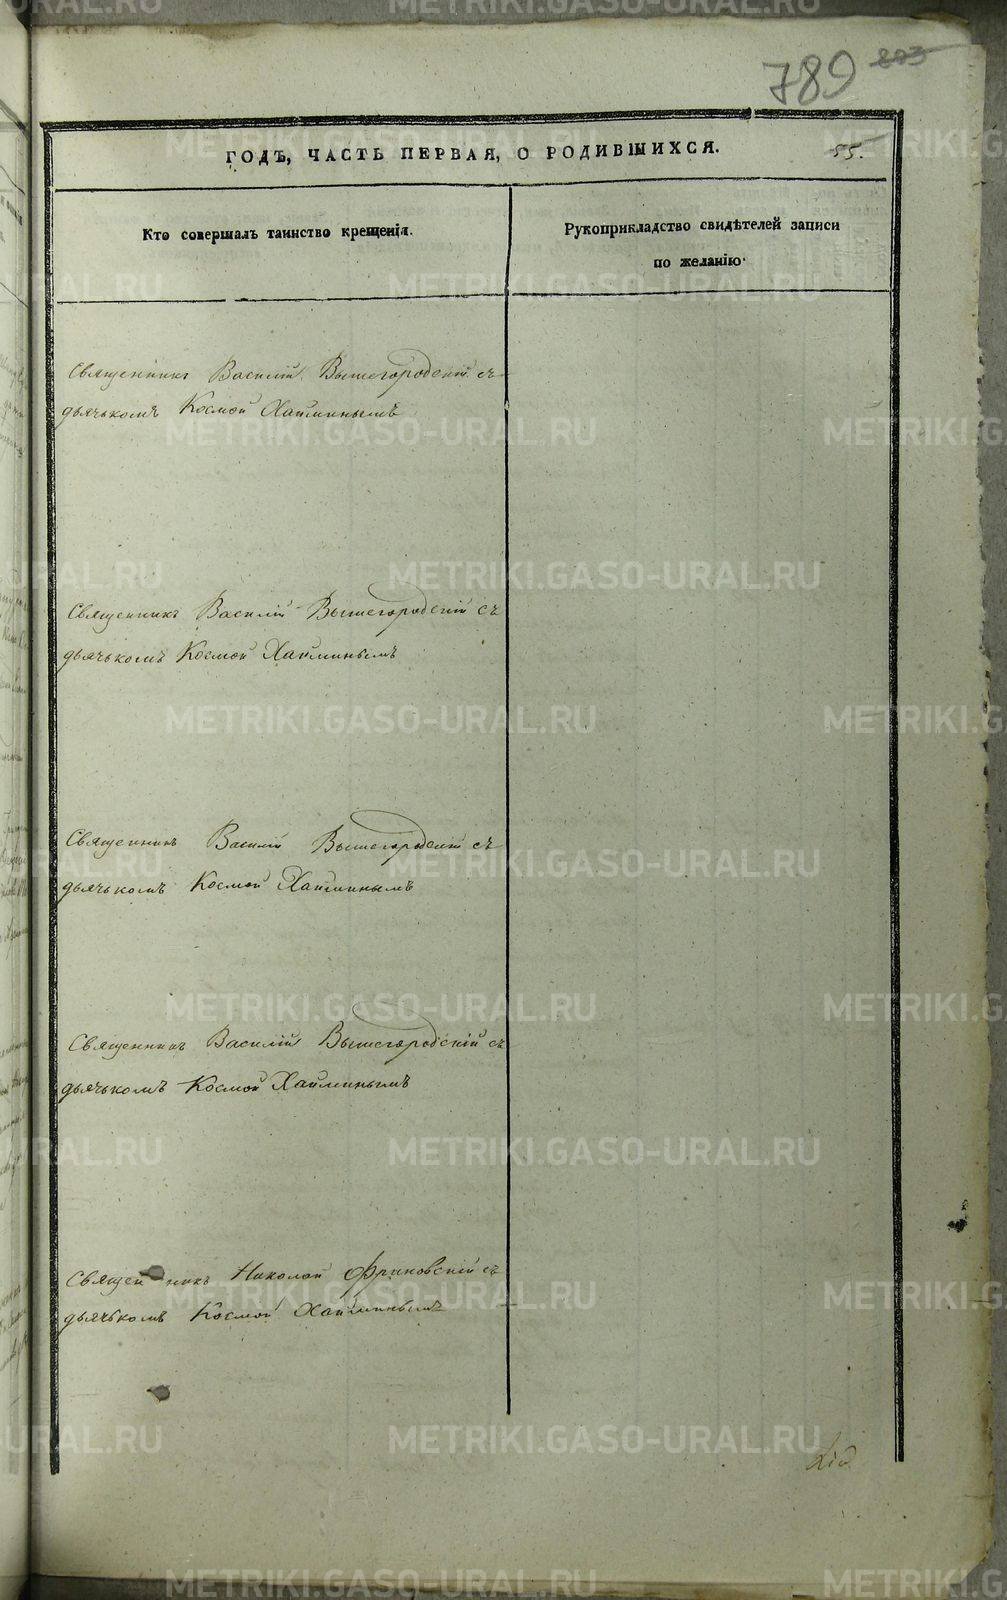 789 803
ГОДЪ, ЧАСТЬ ПЕРВАЯ, О РОДИВШИХСЯ. 55.
Кто совершалъ таинство крещенія.
Рукоприкладство свидѣтелей записи
по желанію.
Священникъ Василій Вышегородскій съ
дьячькомъ Космой Хайминымъ
Священникъ Василій Вышегородскій съ
дьячькомъ Космой Хайминымъ
Священникъ Василій Вышегородскій съ
дьячькомъ Космой Хайминымъ
Священникъ Василій Вышегородскій съ
дьячькомъ Космой Хайминымъ
Священникъ Николай съ
дьячькомъ Космой Хайминымъ
METRIKI.GASO-URAL.RU